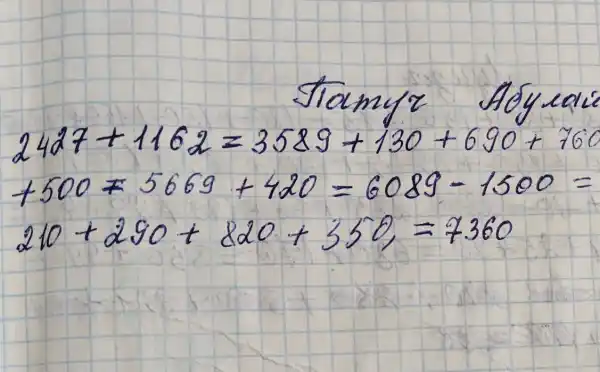 Патуч Абулай
2427 + 1162 = 3589 + 130 + 690 + 760
+ 500 = 5669 + 420 = 6089 - 1500 =
210 + 290 + 820 + 350, = 7360